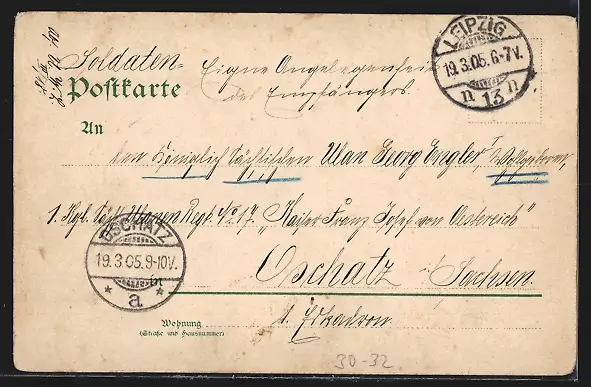 Soldaten- Eigne Angelegenheit
Postkarte des Empfängers.
LEIPZIG
19.3.05.6-7V.
n 13 n
An
den Königlich Sächsischen Ulan Georg Engler, Wohlgeboren,
1. Kgl. Sächs. Ulanen Regt. No. 17 "Kaiser Franz Josef von Oesterreich"
OSCHATZ
19.3.05.9-10V.
* a *
in Oschatz i. Sachsen.
Wohnung
(Straße und Hausnummer)
Eskadron
30-32